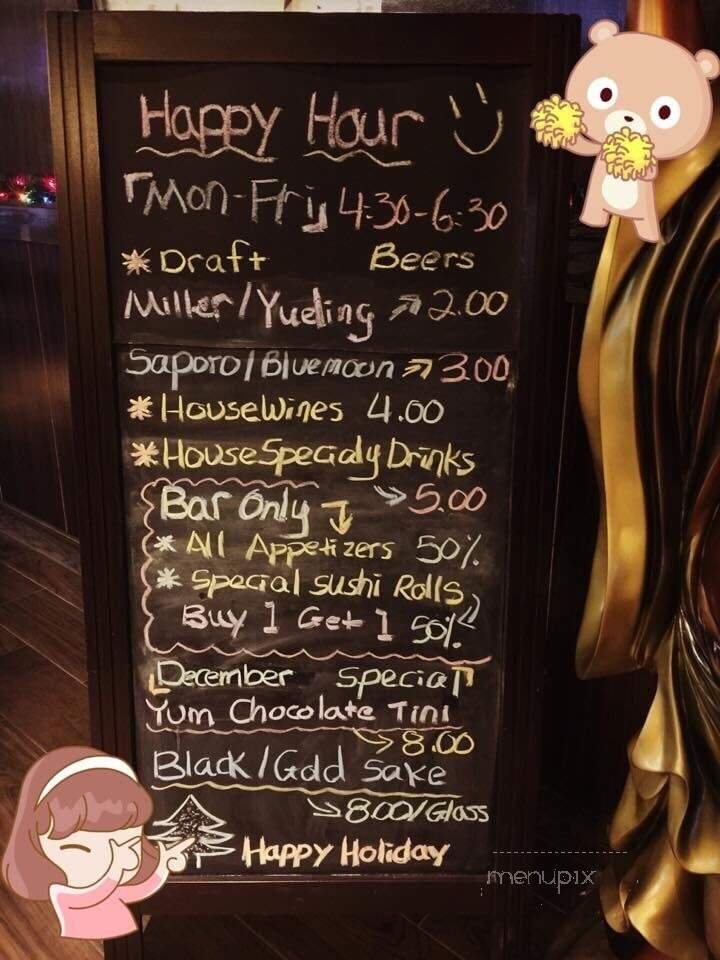 Happy Hour
「Mon-Fri」 4:30-6:30
* Draft Beers
Miller/Yueling → 2.00
Saporo/Bluemoon → 3.00
* HouseWines 4.00
* House Specialy Drinks
→ 5.00
Bar Only ↓
* All Appetizers 50%
* Special sushi Rolls
Buy 1 Get 1 50%
December Special
Yum Chocolate Tini
→ 8.00
Black/Gold Sake
→ 8.00/Glass
Happy Holiday
menupix